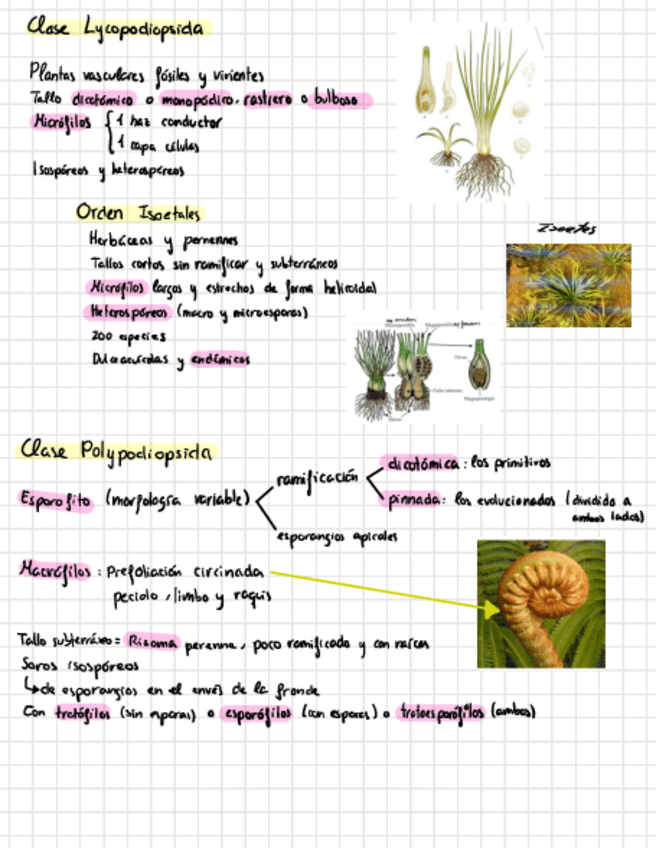 Clase Lycopodiopsida
Plantas vasculares fósiles y vivientes
Tallo dicotómico o monopódico, rastrero o bulboso
Micrófilos { 1 haz conductor
1 capa células
Isospóreos y heterospóreos
Orden Isoetales
Herbáceas y perennes
Tallos cortos sin ramificar y subterráneos
Isoetes
Micrófilos largos y estrechos de forma helicoidal
Heterospóreos (macro y microesporas)
200 especies
Dulceacuícolas y endémicos
Clase Polypodiopsida
Esporofito (morfología variable)
ramificación
dicotómica: los primitivos
pinnada: los evolucionados (dividida a
ambos lados)
esporangios apicales
Macrófilos: Prefoliación circinada
peciolo, limbo y raquis
Tallo subterráneo = Rizoma perenne, poco ramificado y con raíces
Soros isospóreos
↳ de esporangios en el envés de la fronde
Con trofófilos (sin esporas) o esporófilos (con espores) o trofoesporófilos (ambos)